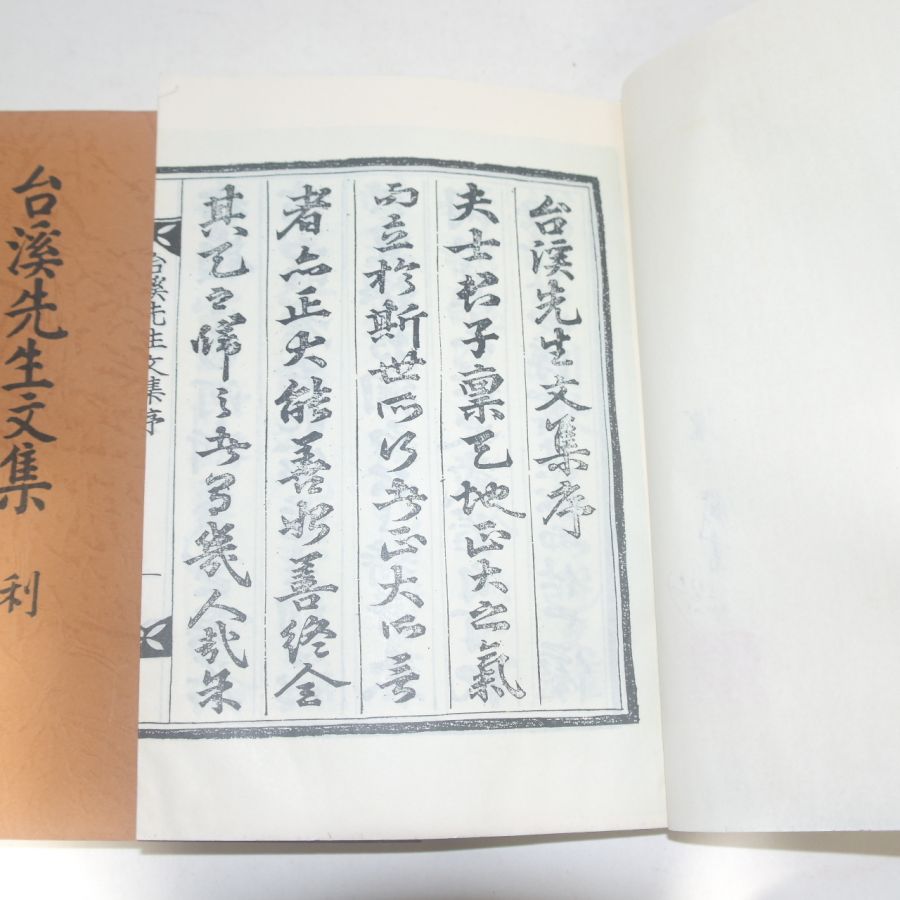 台溪先生文集序
夫士君子稟天地正大之氣
而立於斯世所行者正大所言
者亦正大能善始善終全
其天歸之者幾人哉
台溪先生文集序 一
台溪先生文集 利